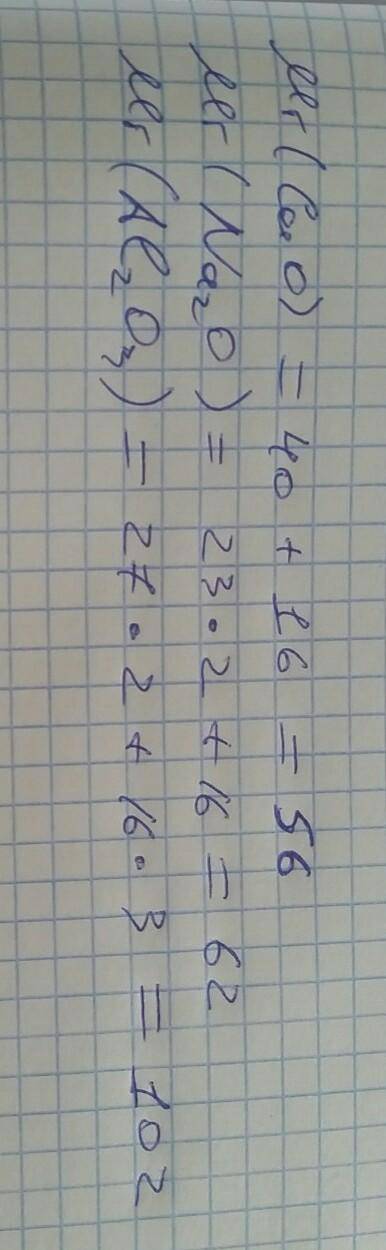 Mr (CaO) = 40 + 16 = 56
Mr (Na₂O) = 23 · 2 + 16 = 62
Mr (Al₂O₃) = 27 · 2 + 16 · 3 = 102